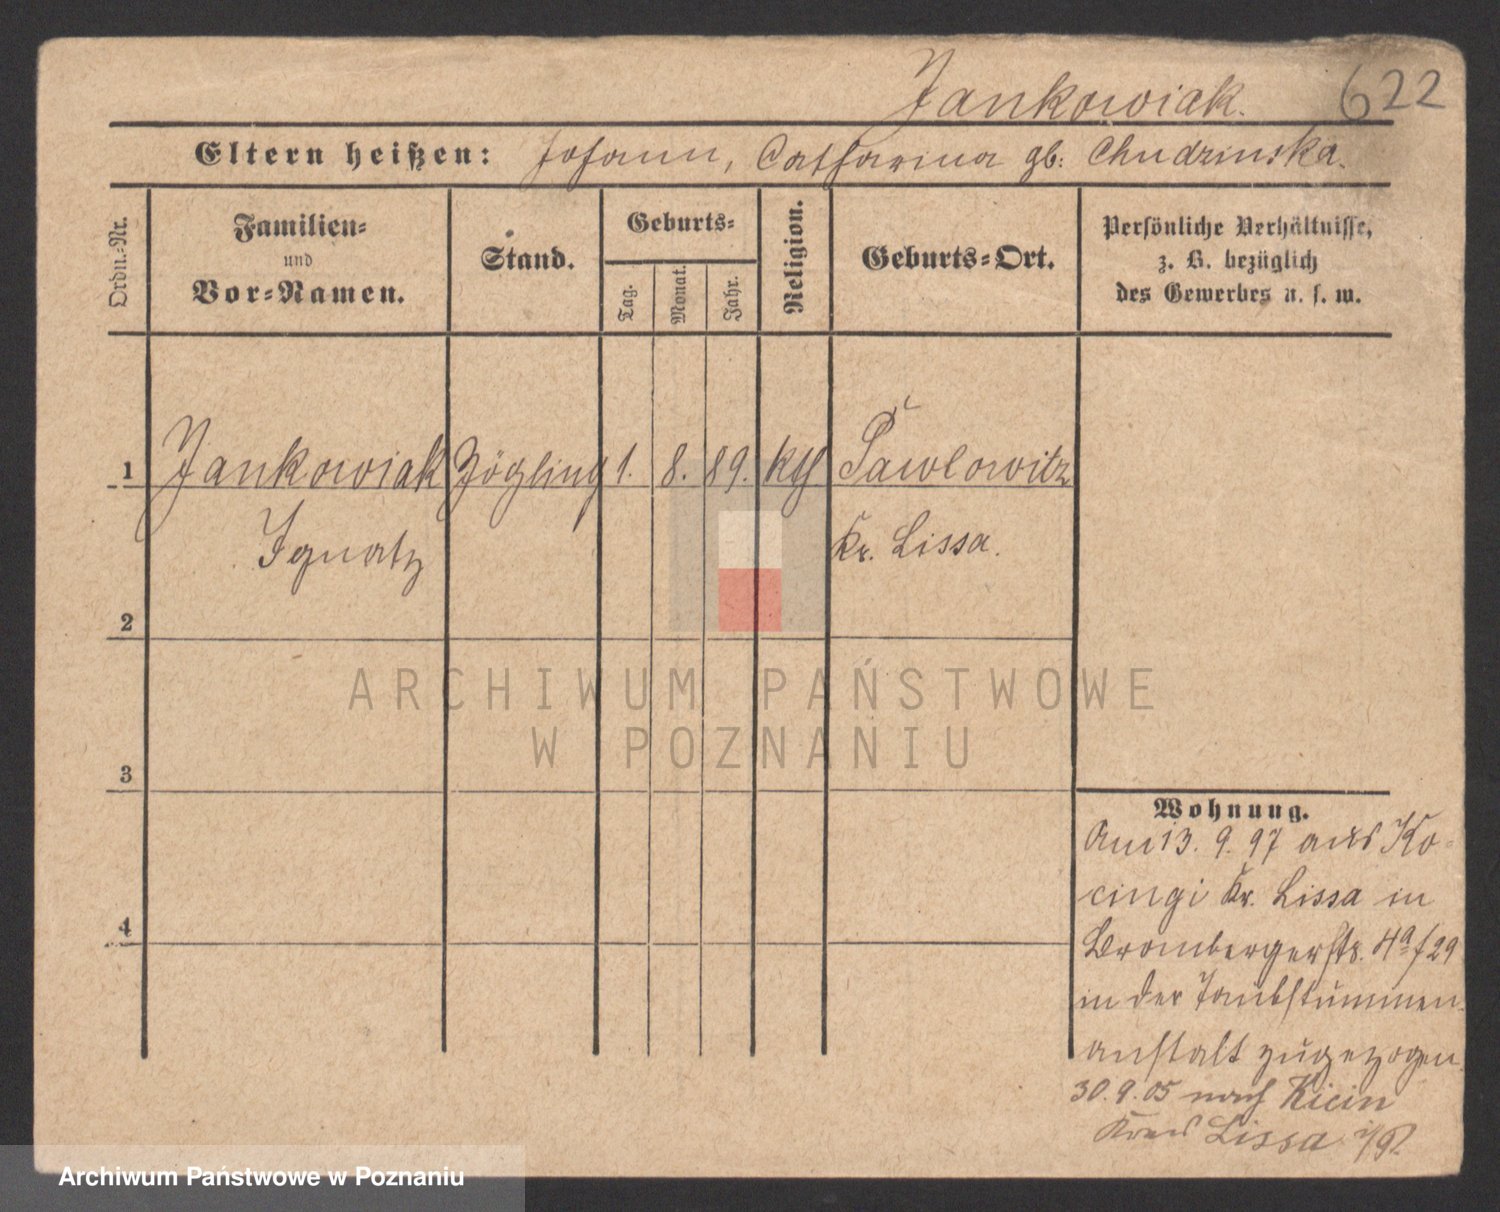 Jankowiak. 622
Eltern heißen: Johann, Catharina gb: Chudzinska.
Ordn.-Nr.
Familien-
und
Vor-Namen.
Stand.
Geburts-
Tag.
Monat.
Jahr.
Religion.
Geburts-Ort.
Persönliche Verhältnisse,
z. B. bezüglich
des Gewerbes u. s. w.
1 Jankowiak Zögling 1. 8. 89. kth Pawlowitz
Ignatz Kr. Lissa.
2
ARCHIWUM PAŃSTWOWE
W POZNANIU
3
4
Wohnung.
Am 13. 9. 97 aus Ko-
cingi Kr. Lissa in
Brombergerstr. 4a f 29
in der Taubstummen-
anstalt zugezogen.
30.9.05 nach Kicin
Kreis Lissa
Archiwum Państwowe w Poznaniu